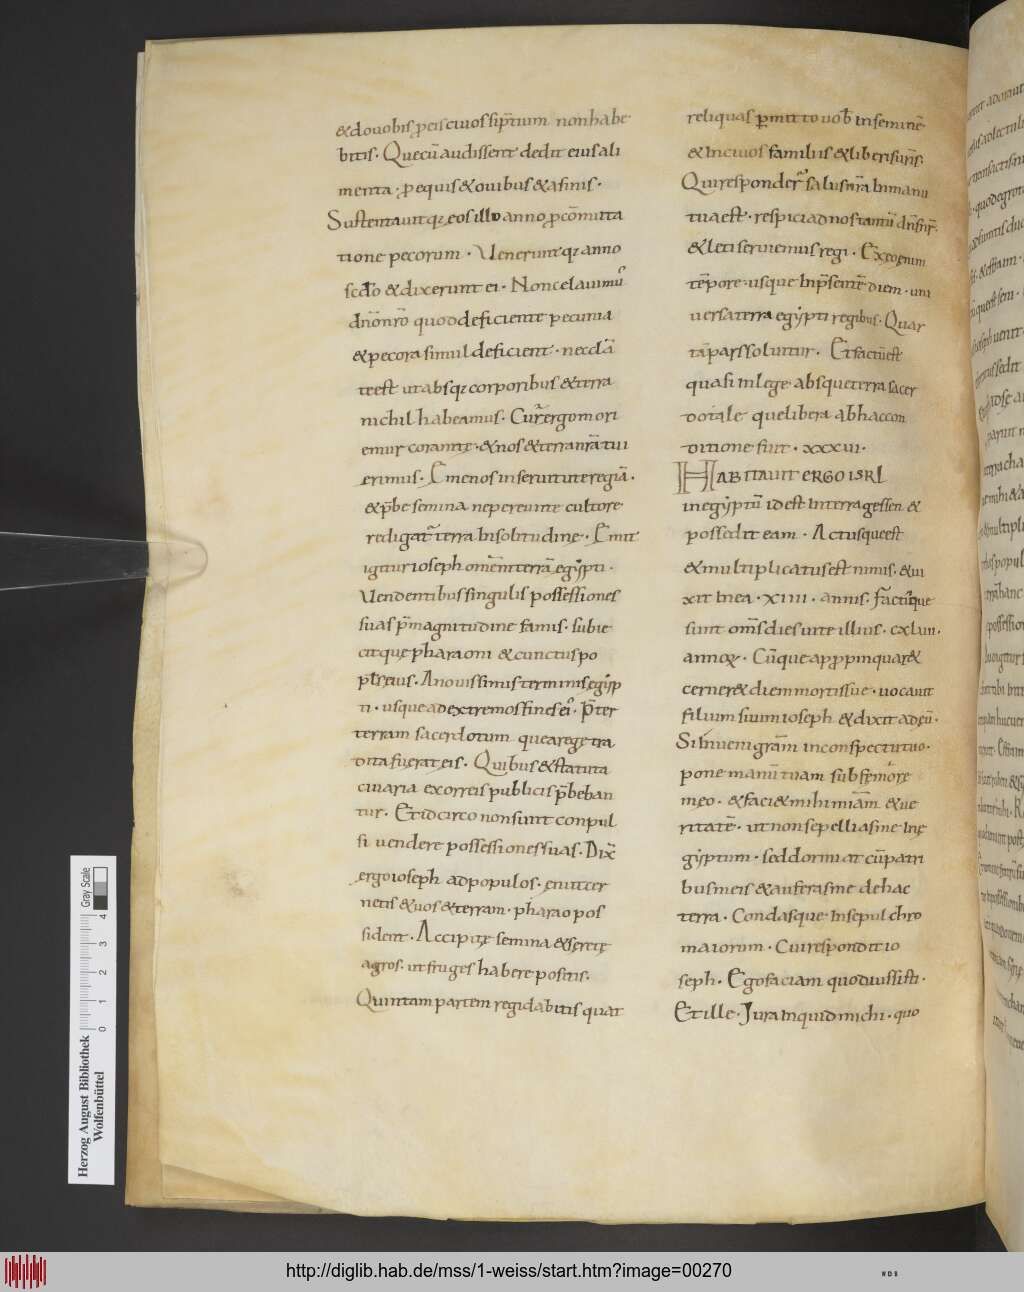 &douobis p eis cibos si p̄tium non habe
bitis. Quecū audissent dedit eius ali
menta. p equis & ouibus & asinis.
Sustentauitq; eos illo anno p cōmuta
tione pecorum. Uenerunt q; anno
scdo & dixerunt ei. Non celauimꝰ
dn̄m nrm quod deficiente pecunia
& pecora simul deficient. nec clā
te est ut absq; corporibus & terra
nichil habeamus. Cur̄ ergo mori
emur coram te. & nos & terra nrā tui
erimus. Eme nos in seruitute regiā.
& p̄be semina ne pereunte cultore
redigat̄ terra in solitudinę. Emit
igitur ioseph omēm terrā egypti.
Uendentibus singulis possessiones
suas p̄ magnitudine famis. subie
citque pharaoni & cunctus po
pl̄s eius. A nouissimis terminis egyp
ti. usque ad extremos fines eiꝰ. P̄ter
terram sacerdotum que a rege tra
dita fuerat eis. Quibus & statuta
cibaria ex orreis publicis p̄beban
tur. Et idcirco non sunt conpul
si uendere possessiones suas. Dix̄
ergo ioseph ad populos. en ut cer
netis & uos & terram. pharao pos
sident. Accipite semina & serite
agros. ut fruges habere possitis.
Quintam partem regi dabitis quat
reliquas p̱mitto uob̄ in seminē
& in cibos familiis & liberis uris.
Qui responder̄ salus nrā in manu
tua est. respiciad nos tantū dn̄s nr̄.
& leti seruiemus regi. Ex eo enim
tēpore usque in p̄sentē diem. uni
uersa terra egypti regibus. Quar
tā pars soluitur. Et factū est
quasi in lege absque terra sacer
dotale que libera ab hac con
ditione fuit. xxxvii.
HABITAUIT ERGO ISRL
in egyptū id est in terra gessen &
possedit eam. Actusque est
& multiplicatus est nimis. & ui
xit in ea. XIIII. annis. factique
sunt om̄s dies uite illius. cxlvii.
annoꝝ. Cūque appropinquar&
cerner& diem mortis sue. uocauit
filium suum ioseph & dixit ad eū.
Si inueni grām in conspectu tuo.
pone manū tuam sub femore
meo. & facies mihi miām & ue
ritatē. ut non sepellias me in ę
gyptum. sed dormiat cū patri
bus meis & auferas me de hac
terra. Condasque in sepulchro
maiorum. Cui respondit io
seph. Ego faciam quod iussisti.
Et ille. Iura inquid michi. quo
Herzog August Bibliothek
Wolfenbüttel
0 1 2 3 4
Gray Scale
http://diglib.hab.de/mss/1-weiss/start.htm?image=00270